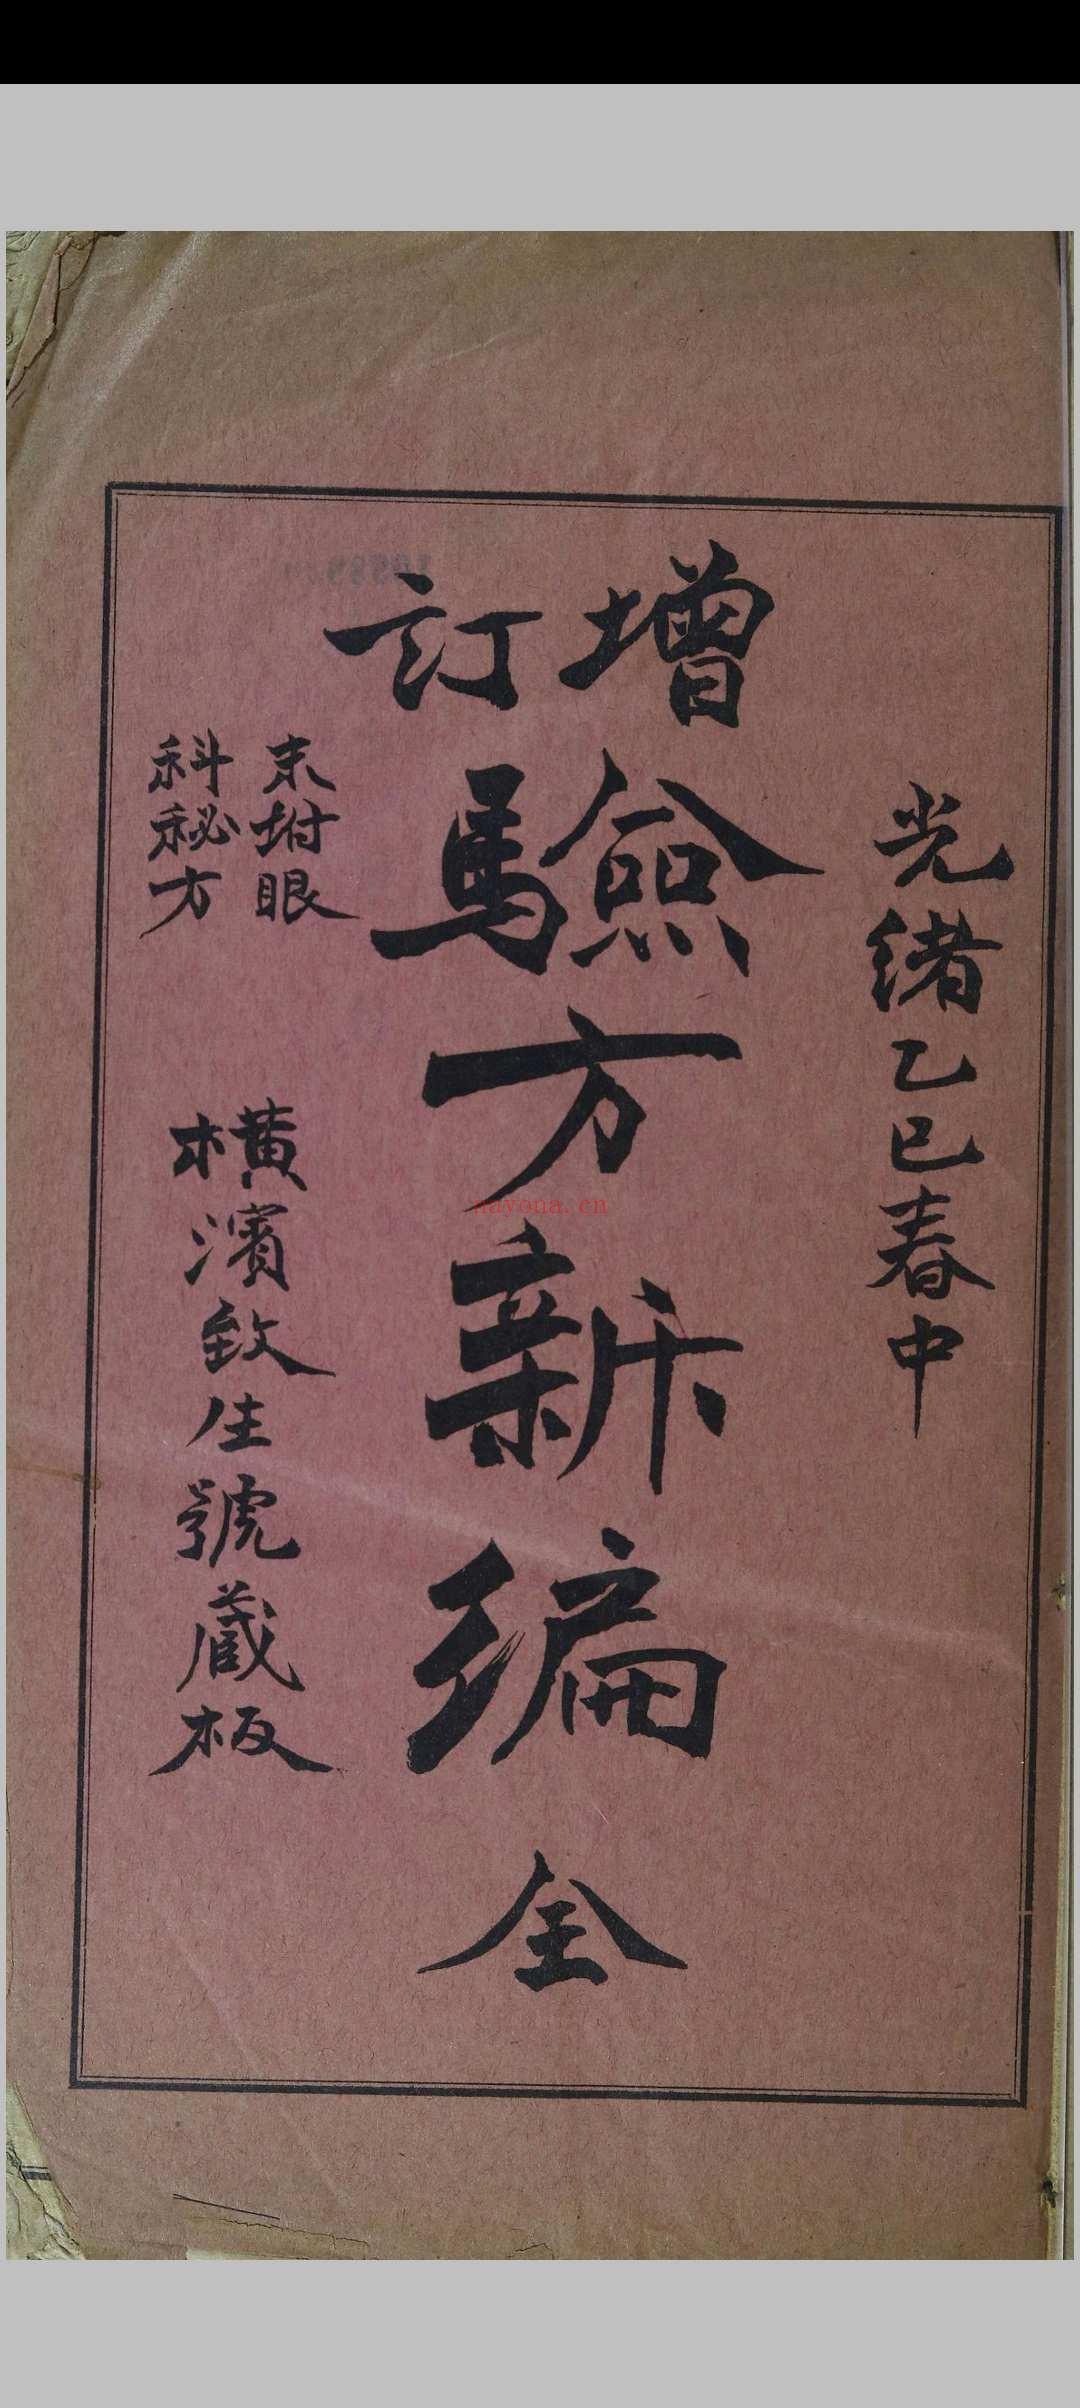 光緒乙巳春中
增訂
驗方新編
全
末坿眼
科秘方
橫濱致生號藏板
nayona.cn